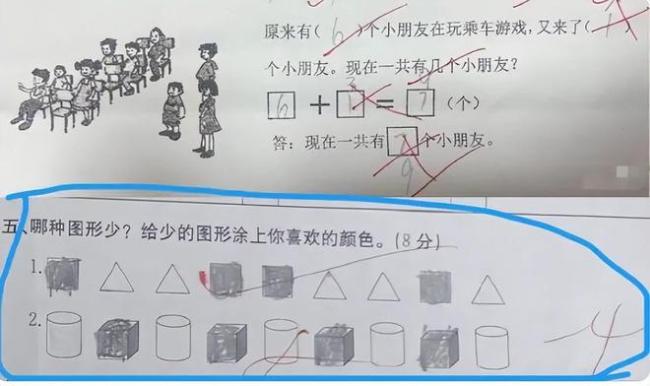 原来有( 6 )个小朋友在玩乘车游戏,又来了( 1 )
个小朋友。现在一共有几个小朋友?
3 9
6 + 1 = 7 (个)
答:现在一共有7个小朋友。
9
五、哪种图形少?给少的图形涂上你喜欢的颜色。(8分)
1.
2.
-4